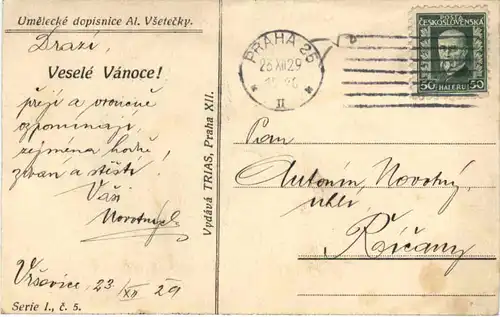 Umělecké dopisnice Al. Všetečky.
Drazí,
Veselé Vánoce!
přejí a vroucně
vzpomínají
zejména hodně
zdraví a štěstí
Vaši
Novotný
Vršovice 23/XII 29
Serie I., č. 5.
Vydává TRIAS, Praha XII.
PRAHA 25
23 XII 29
II
POŠTA
ČESKOSLOVENSKÁ
50 HALERU 50
Pan
Antonín Novotný,
Říčany